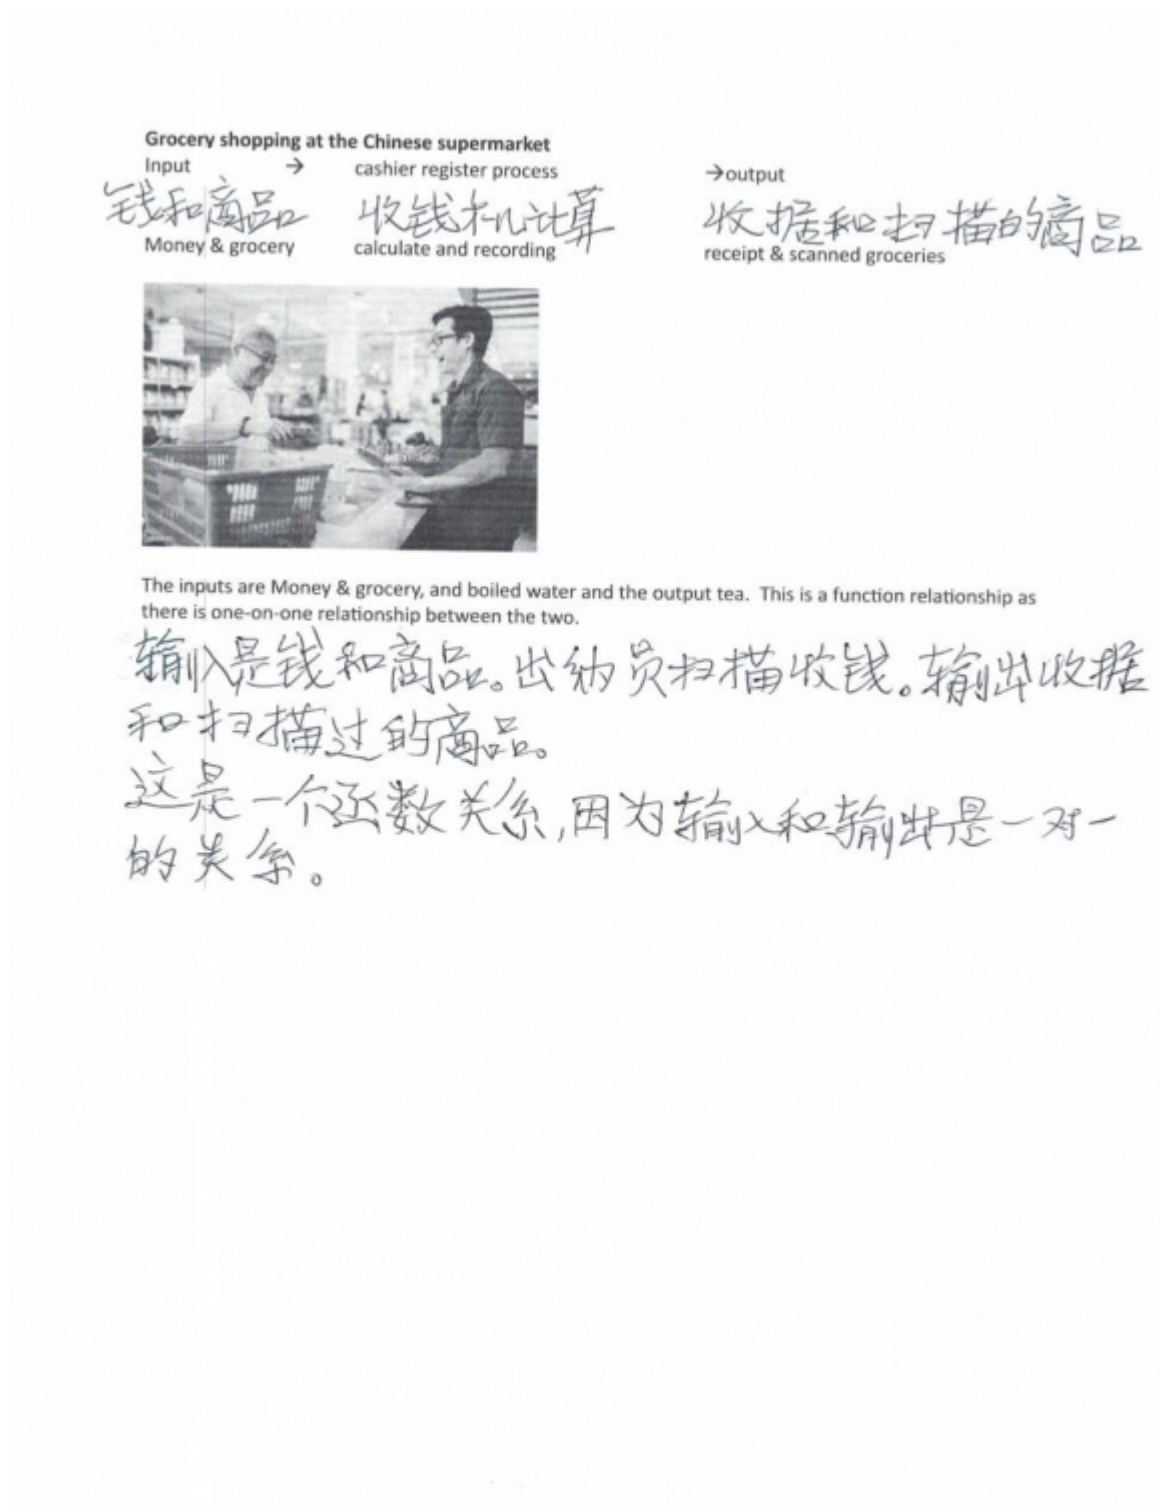 Grocery shopping at the Chinese supermarket
Input → cashier register process →output
钱和商品 收钱机计算 收据和扫描的商品
Money & grocery calculate and recording receipt & scanned groceries
The inputs are Money & grocery, and boiled water and the output tea. This is a function relationship as
there is one-on-one relationship between the two.
输入是钱和商品。出纳员扫描收钱。输出收据
和扫描过的商品。
这是一个函数关系,因为输入和输出是一对一
的关系。